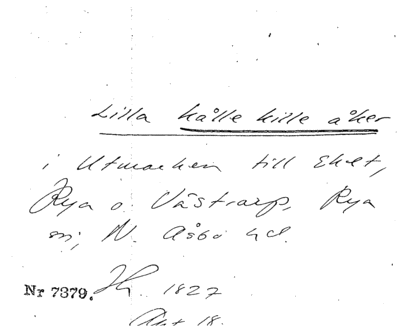 Lilla kålle kille åker
i Utmarken till Eket,
Rya o. Västrarp, Rya
sn; N. Åsbo hd.
Nr 7379. 1827
Akt 18.